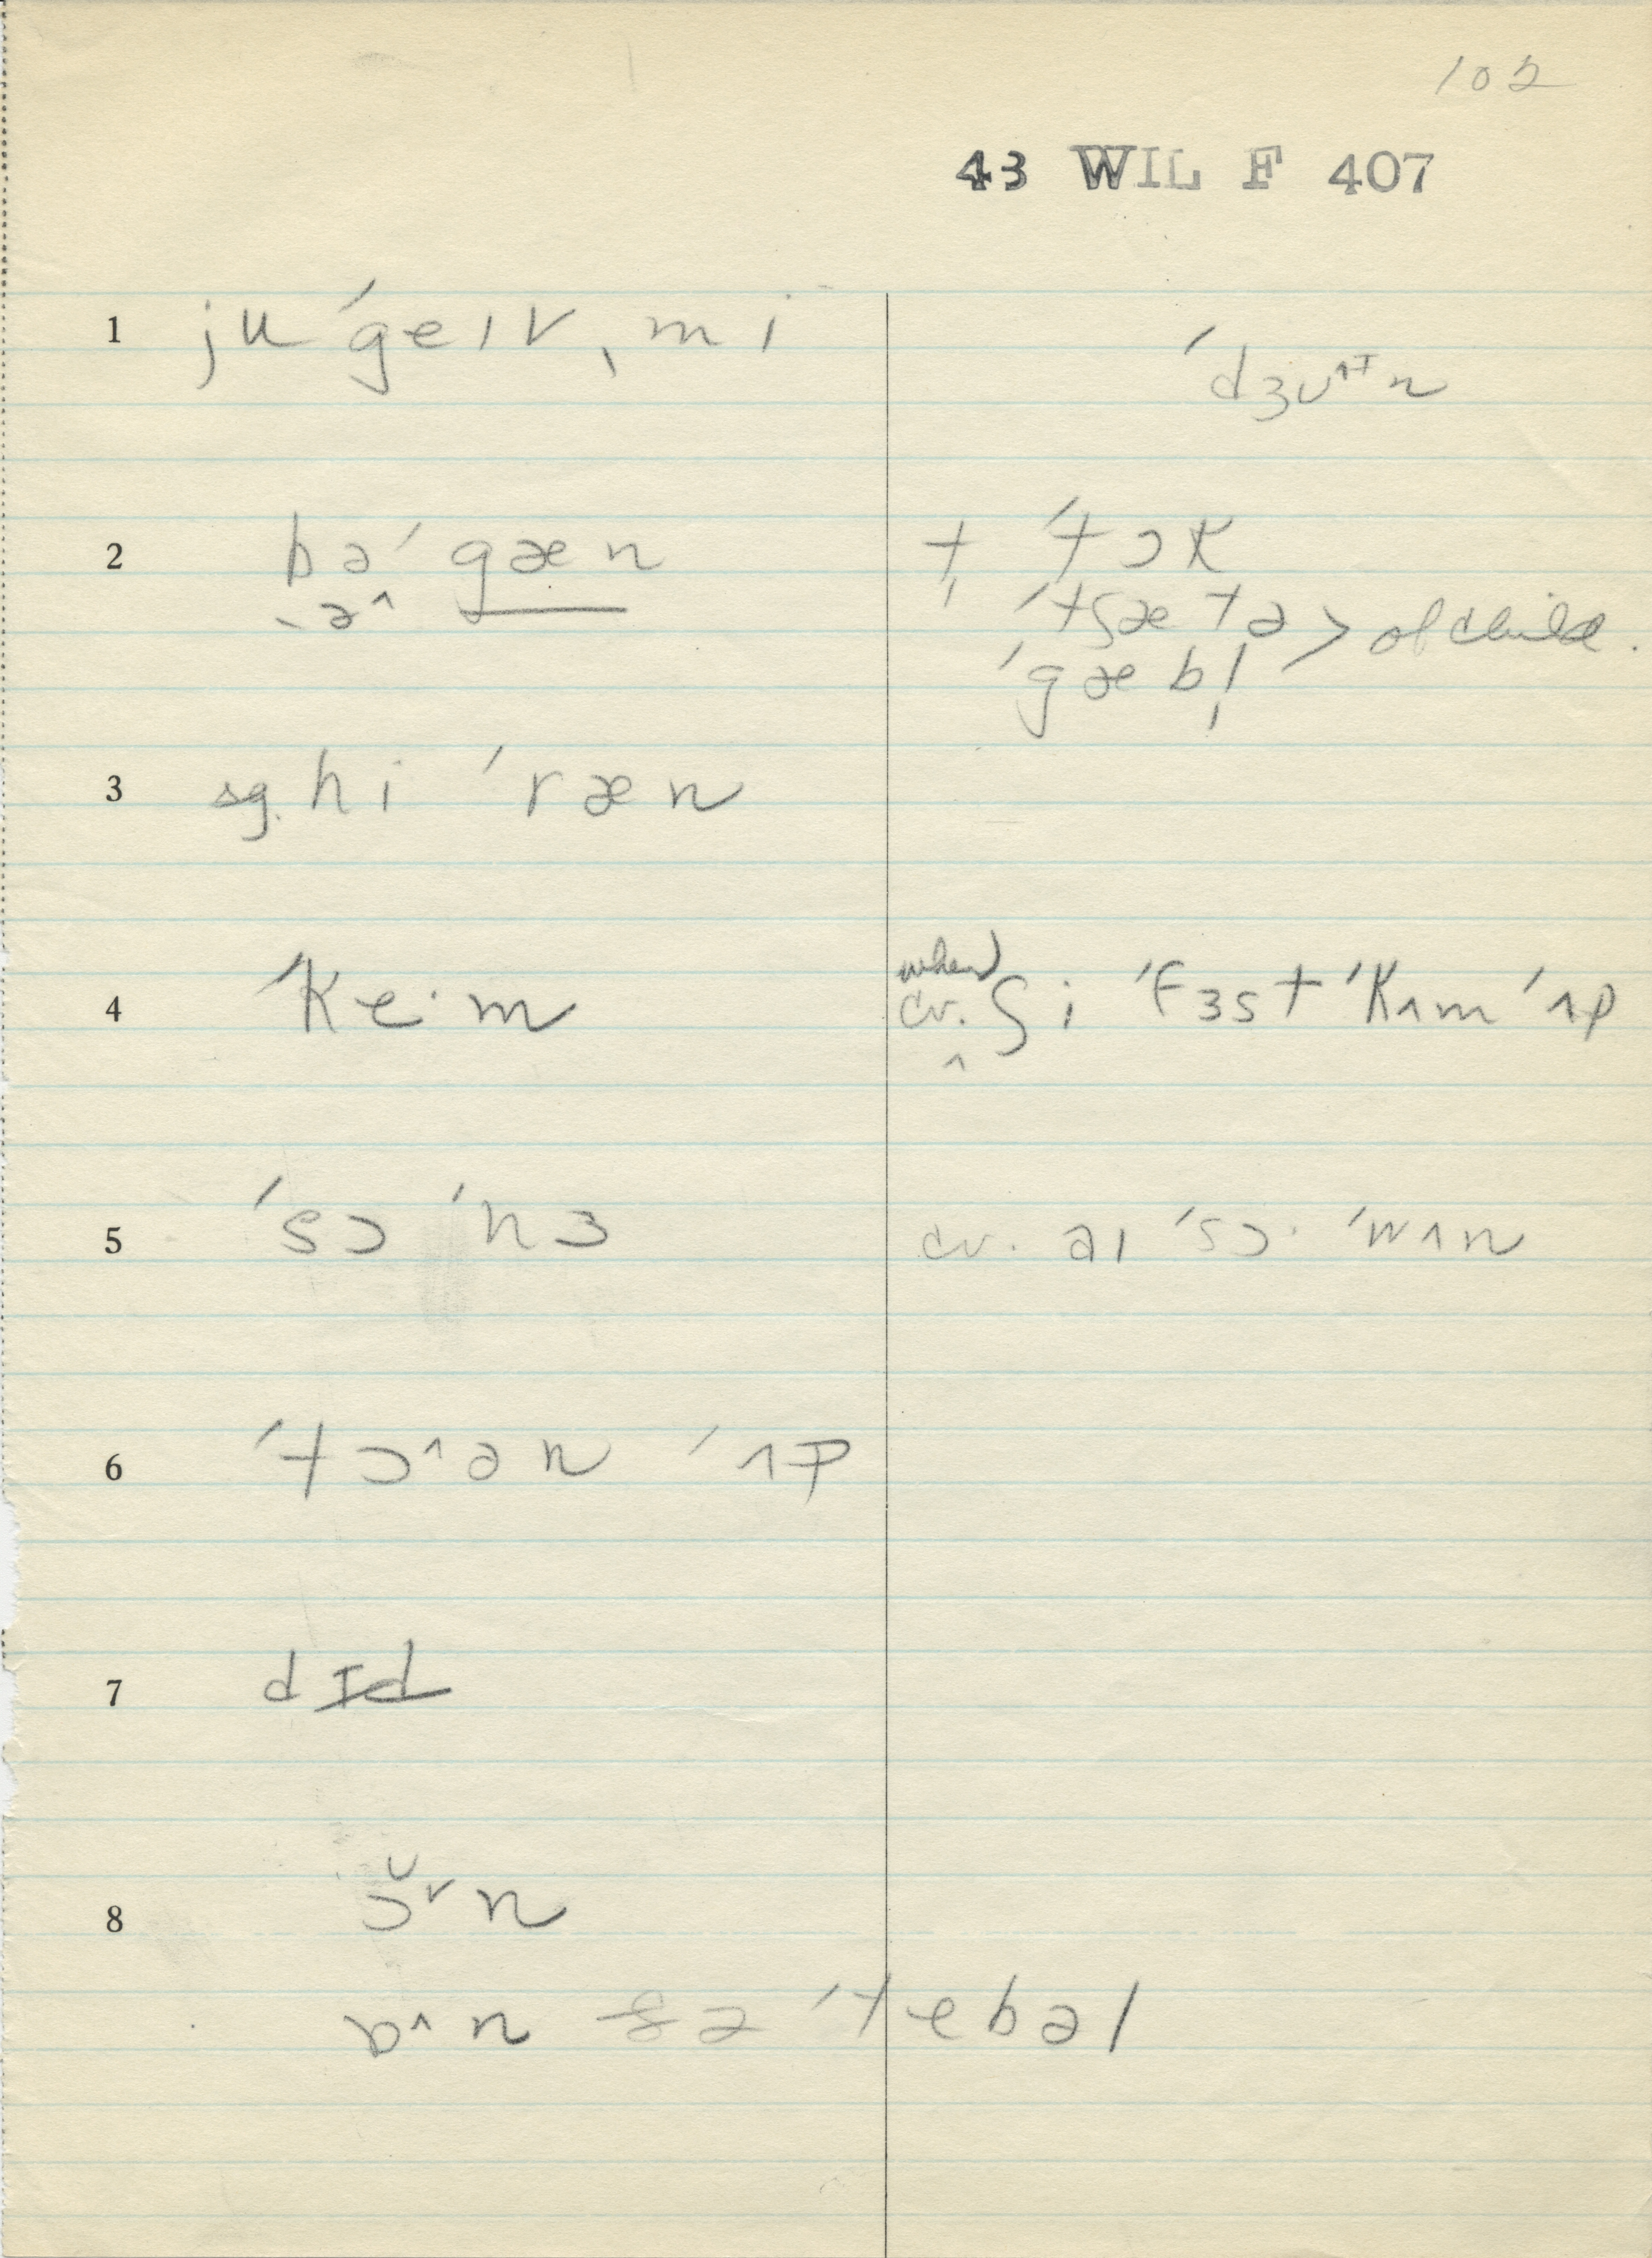 102
43 WIL F 407
1 ju ˈgeɪv ˌmi
ˈdʒuˆɪn
2 bəˈgæn
-əˆ
t̩ ˈtɔk
ˈtʃætə > of child.
ˈgæbl̩
3 sg. hi ˈræn
4 ˈke·m
when
cv. ʃi ˈfɜst ˈkʌm ˈʌp
^
5 ˈsɔ ˈhɜ
cv. aɪ ˈsɔ· ˈwʌn
6 ˈtɔˆən ˈʌp
7 dɪd
8 ɔ̆ˇn
ɒˆn ðə ˈtebəl